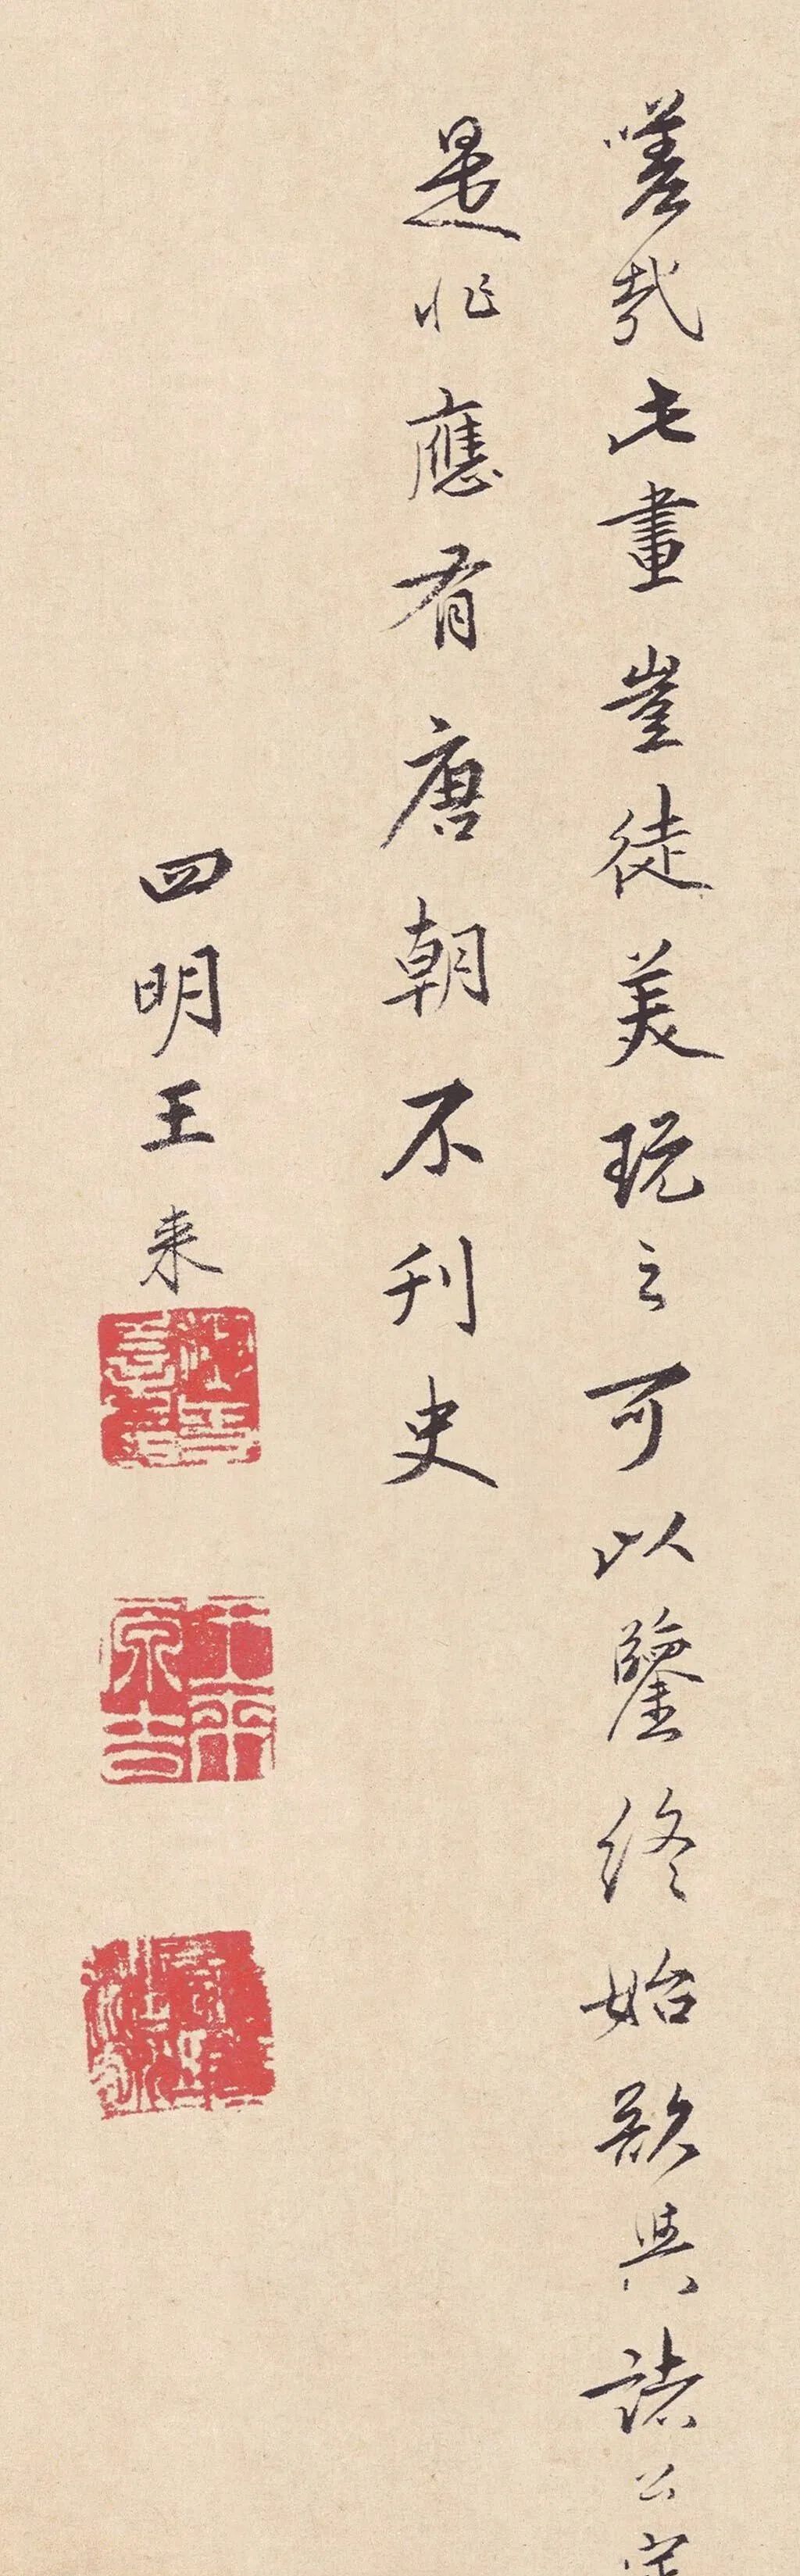 嗟哉此畫豈徒美玩之可以鑒終始欲與諸公
是非應有唐朝不刊史
四明王来